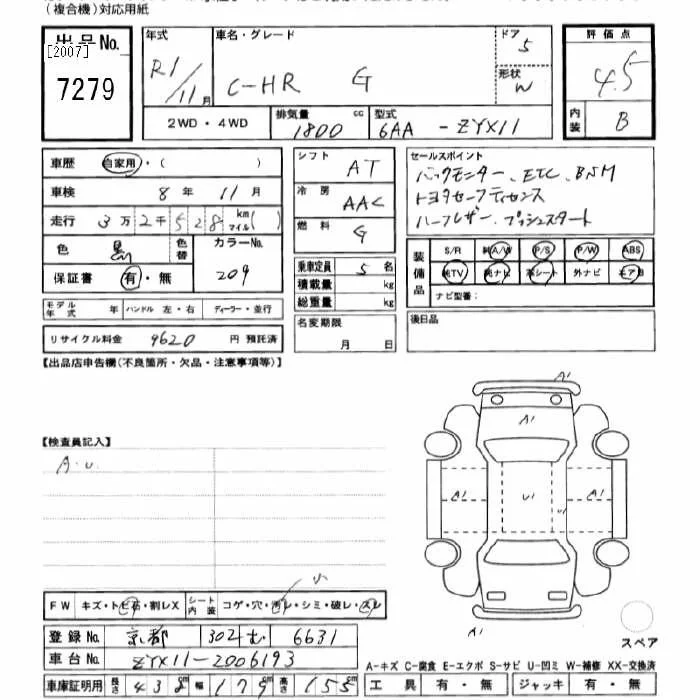 (複合機)対応用紙
出品No.
[2007]
7279
年式 車名・グレード ドア 評価点
R1/11月 C-HR G 5 4.5
形状 W
2WD・4WD 排気量 1800 cc 型式 6AA - ZYX11 内装 B
車歴 自家用・( )
車検 8年 11月
走行 3万2千528 km マイル( )
色 黒 色替 カラーNo. 209
保証書 有・無
モデル年式 年 ハンドル 左・右 ディーラー・並行
リサイクル料金 9620 円 預託済
シフト AT
冷房 AAC
燃料 G
乗車定員 5名
積載量 kg
総重量 kg
名変期限
月 日
セールスポイント
バックモニター、ETC、BSM
トヨタセーフティセンス
ハーフレザー、プッシュスタート
装備品
S/R 純A/W P/S P/W ABS
純TV 純ナビ 革シート 外ナビ エアB
ナビ型番:
後日品
【出品店申告欄(不良箇所・欠品・注意事項等)】
【検査員記入】
A・U
A1
A1
A1 U1 U1 A1
A1
FW キズ・トビ石・割レX シート内装 コゲ・穴・汚レ・シミ・破レ・スレ
登録No. 京都 302 む 6631
車台No. ZYX11-2006193
車庫証明用 長さ 438 幅 179 高さ 155
スペア
A-キズ C-腐食 E-エクボ S-サビ U-凹ミ W-補修 XX-交換済
工具 有・無 ジャッキ 有・無